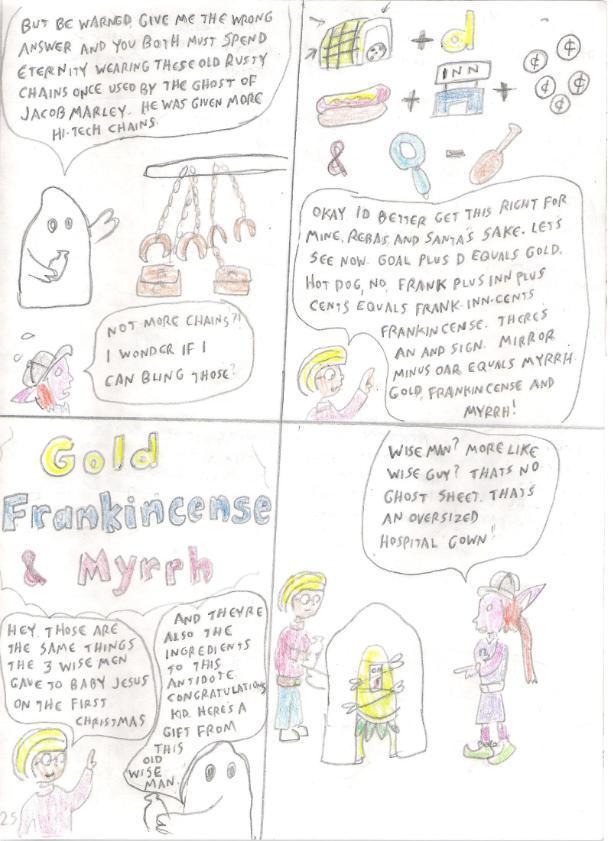 BUT BE WARNED, GIVE ME THE WRONG
ANSWER AND YOU BOTH MUST SPEND
ETERNITY WEARING THESE OLD RUSTY
CHAINS ONCE USED BY THE GHOST OF
JACOB MARLEY. HE WAS GIVEN MORE
HI-TECH CHAINS.
NOT MORE CHAINS?!
I WONDER IF I
CAN BLING THOSE?
+ d
+ INN + ¢ ¢ ¢ ¢ ¢
& -
OKAY I'D BETTER GET THIS RIGHT FOR
MINE, REBAS, AND SANTA'S SAKE. LET'S
SEE NOW. GOAL PLUS D EQUALS GOLD.
HOT DOG, NO, FRANK PLUS INN PLUS
CENTS EQUALS FRANK-INN-CENTS
FRANKINCENSE. THERES
AN AND SIGN. MIRROR
MINUS OAR EQUALS MYRRH.
GOLD, FRANKINCENSE AND
MYRRH!
Gold
Frankincense
& Myrrh
HEY. THOSE ARE
THE SAME THINGS
THE 3 WISE MEN
GAVE TO BABY JESUS
ON THE FIRST
CHRISTMAS
AND THEY'RE
ALSO THE
INGREDIENTS
TO THIS
ANTIDOTE.
CONGRATULATIONS
KID. HERE'S A
GIFT FROM
THIS
OLD
WISE
MAN.
25
WISE MAN? MORE LIKE
WISE GUY? THATS NO
GHOST SHEET. THAT'S
AN OVERSIZED
HOSPITAL GOWN!